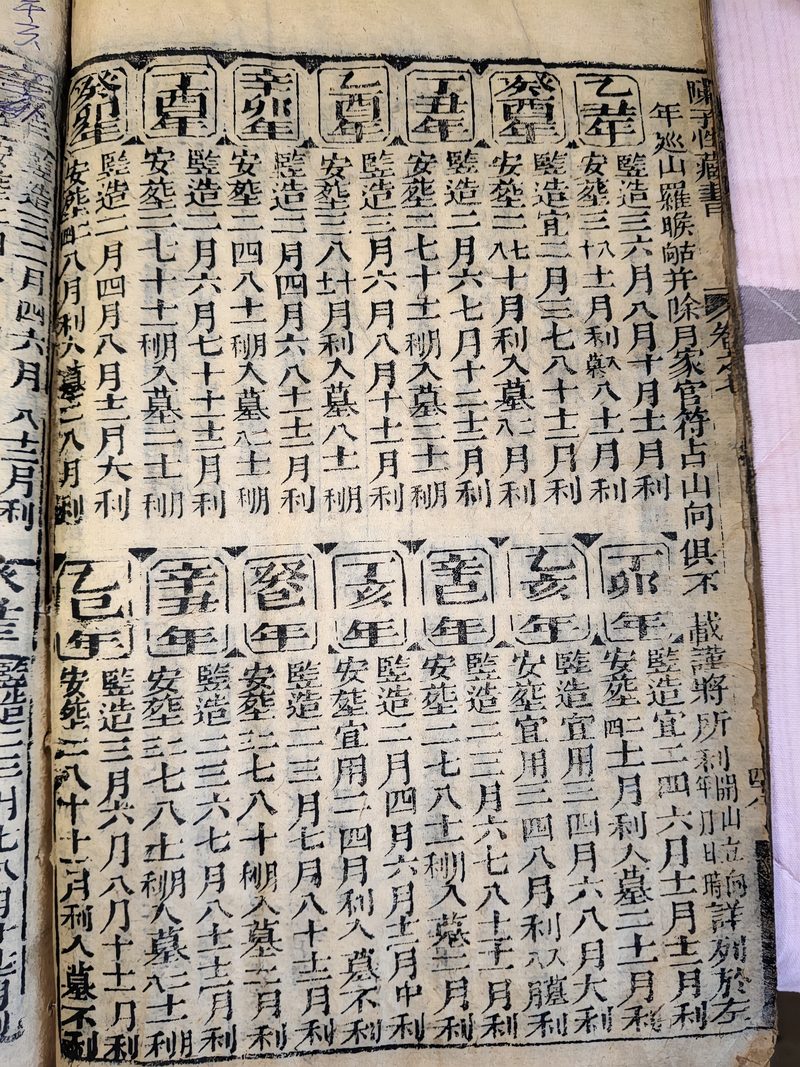 陳子性藏書 卷之七
年巡山羅㬋并除月家官符占山向俱不載謹將所利開山立向年月日時詳列於左
乙丑年
豎造三六月八月十月十二月利
安塟三八十十二月利入墓八十二月利
癸酉年
豎造宜二月三七八十十二月利
安塟二七八十月利入墓二八月利
丁丑年
豎造二月六七月十二月利
安塟二七十十二月利入墓二十二月利
乙酉年
豎造三月六月八月十十二月利
安塟三八十十二月利入墓八十二月利
辛卯年
豎造二月四月六八十十二月利
安塟二四八十二月利入墓二八十二月利
丁酉年
豎造二月六月七十十二月利
安塟三七十十二月利入墓二十二月利
癸卯年
豎造二月四月八月十二月大利
安塟二四八月利入墓二八月利
丁卯年
豎造宜二四六月十一月十二月利
安塟二四十二月利入墓二十二月利
乙亥年
豎造宜用三四月六八月大利
安塟宜用三四八月利入墓八月利
辛巳年
豎造二三月六七八十十二月利
安塟二七八十二月利入墓二月利
丁亥年
豎造二月四月六月十二月中利
安塟宜用二四月利入墓不利
癸巳年
豎造二三月七月八十十二月利
安塟二三七八十月利入墓二三月利
辛丑年
豎造二三六七月八十十二月利
安塟二三七八十二月利入墓二八十二月利
乙巳年
豎造三月六月八月十十二月利
安塟二八十十二月利入墓不利